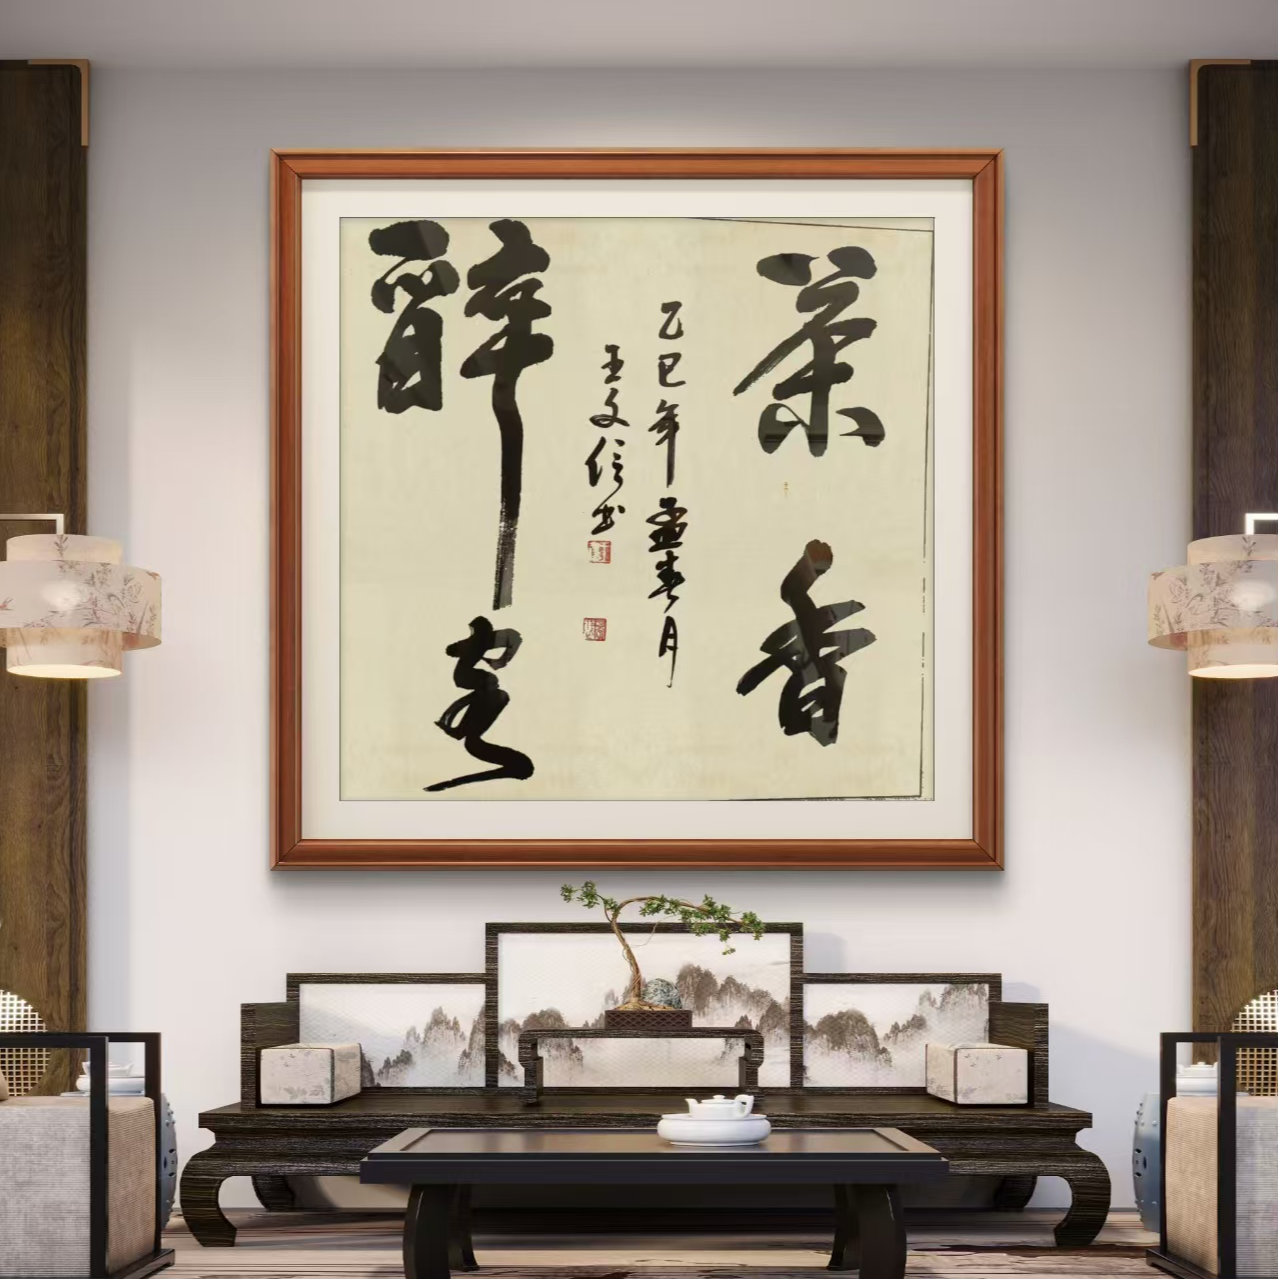 茶香
乙巳年孟春月
王文信书
醉客